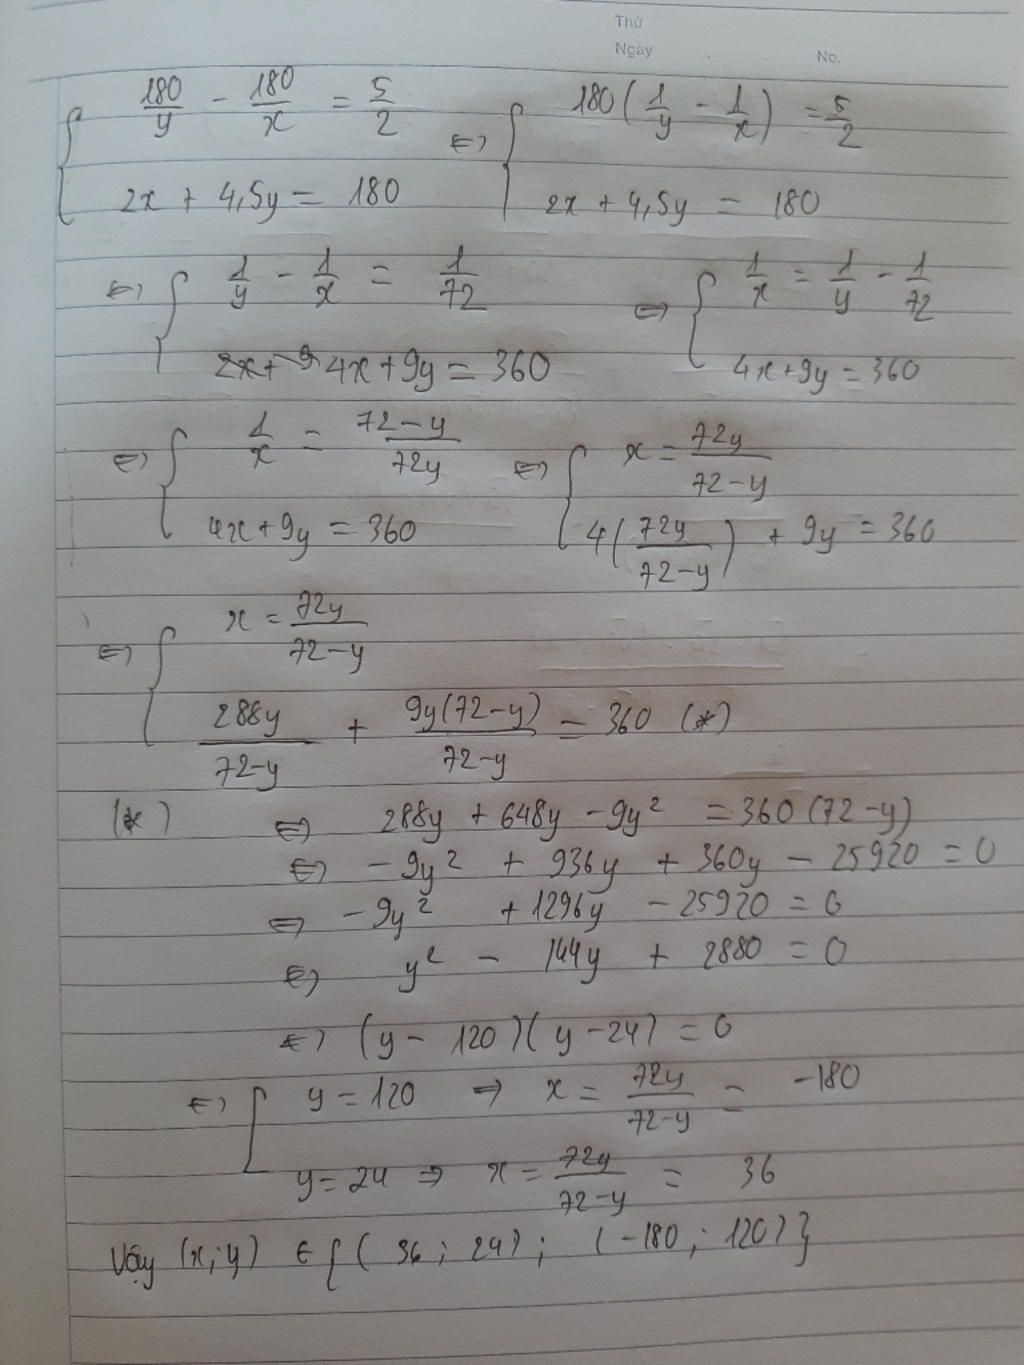 Thứ
Ngày
No.
{ 180/y - 180/x = 5/2 ⇔ { 180(1/y - 1/x) = 5/2
2x + 4,5y = 180    2x + 4,5y = 180
⇔ { 1/y - 1/x = 1/72 ⇔ { 1/x = 1/y - 1/72
2x + 9 4x + 9y = 360    4x + 9y = 360
⇔ { 1/x = (72-y)/72y ⇔ { x = 72y/(72-y)
4x + 9y = 360    4(72y/(72-y)) + 9y = 360
⇔ { x = 72y/(72-y)
288y/(72-y) + 9y(72-y)/(72-y) = 360 (*)
(*) ⇔ 288y + 648y - 9y² = 360(72-y)
⇔ -9y² + 936y + 360y - 25920 = 0
⇔ -9y² + 1296y - 25920 = 0
⇔ y² - 144y + 2880 = 0
⇔ (y - 120)(y - 24) = 0
⇔ [ y = 120 ⇒ x = 72y/(72-y) = -180
y = 24 ⇒ x = 72y/(72-y) = 36
Vậy (x;y) ∈ {(36; 24); (-180; 120)}